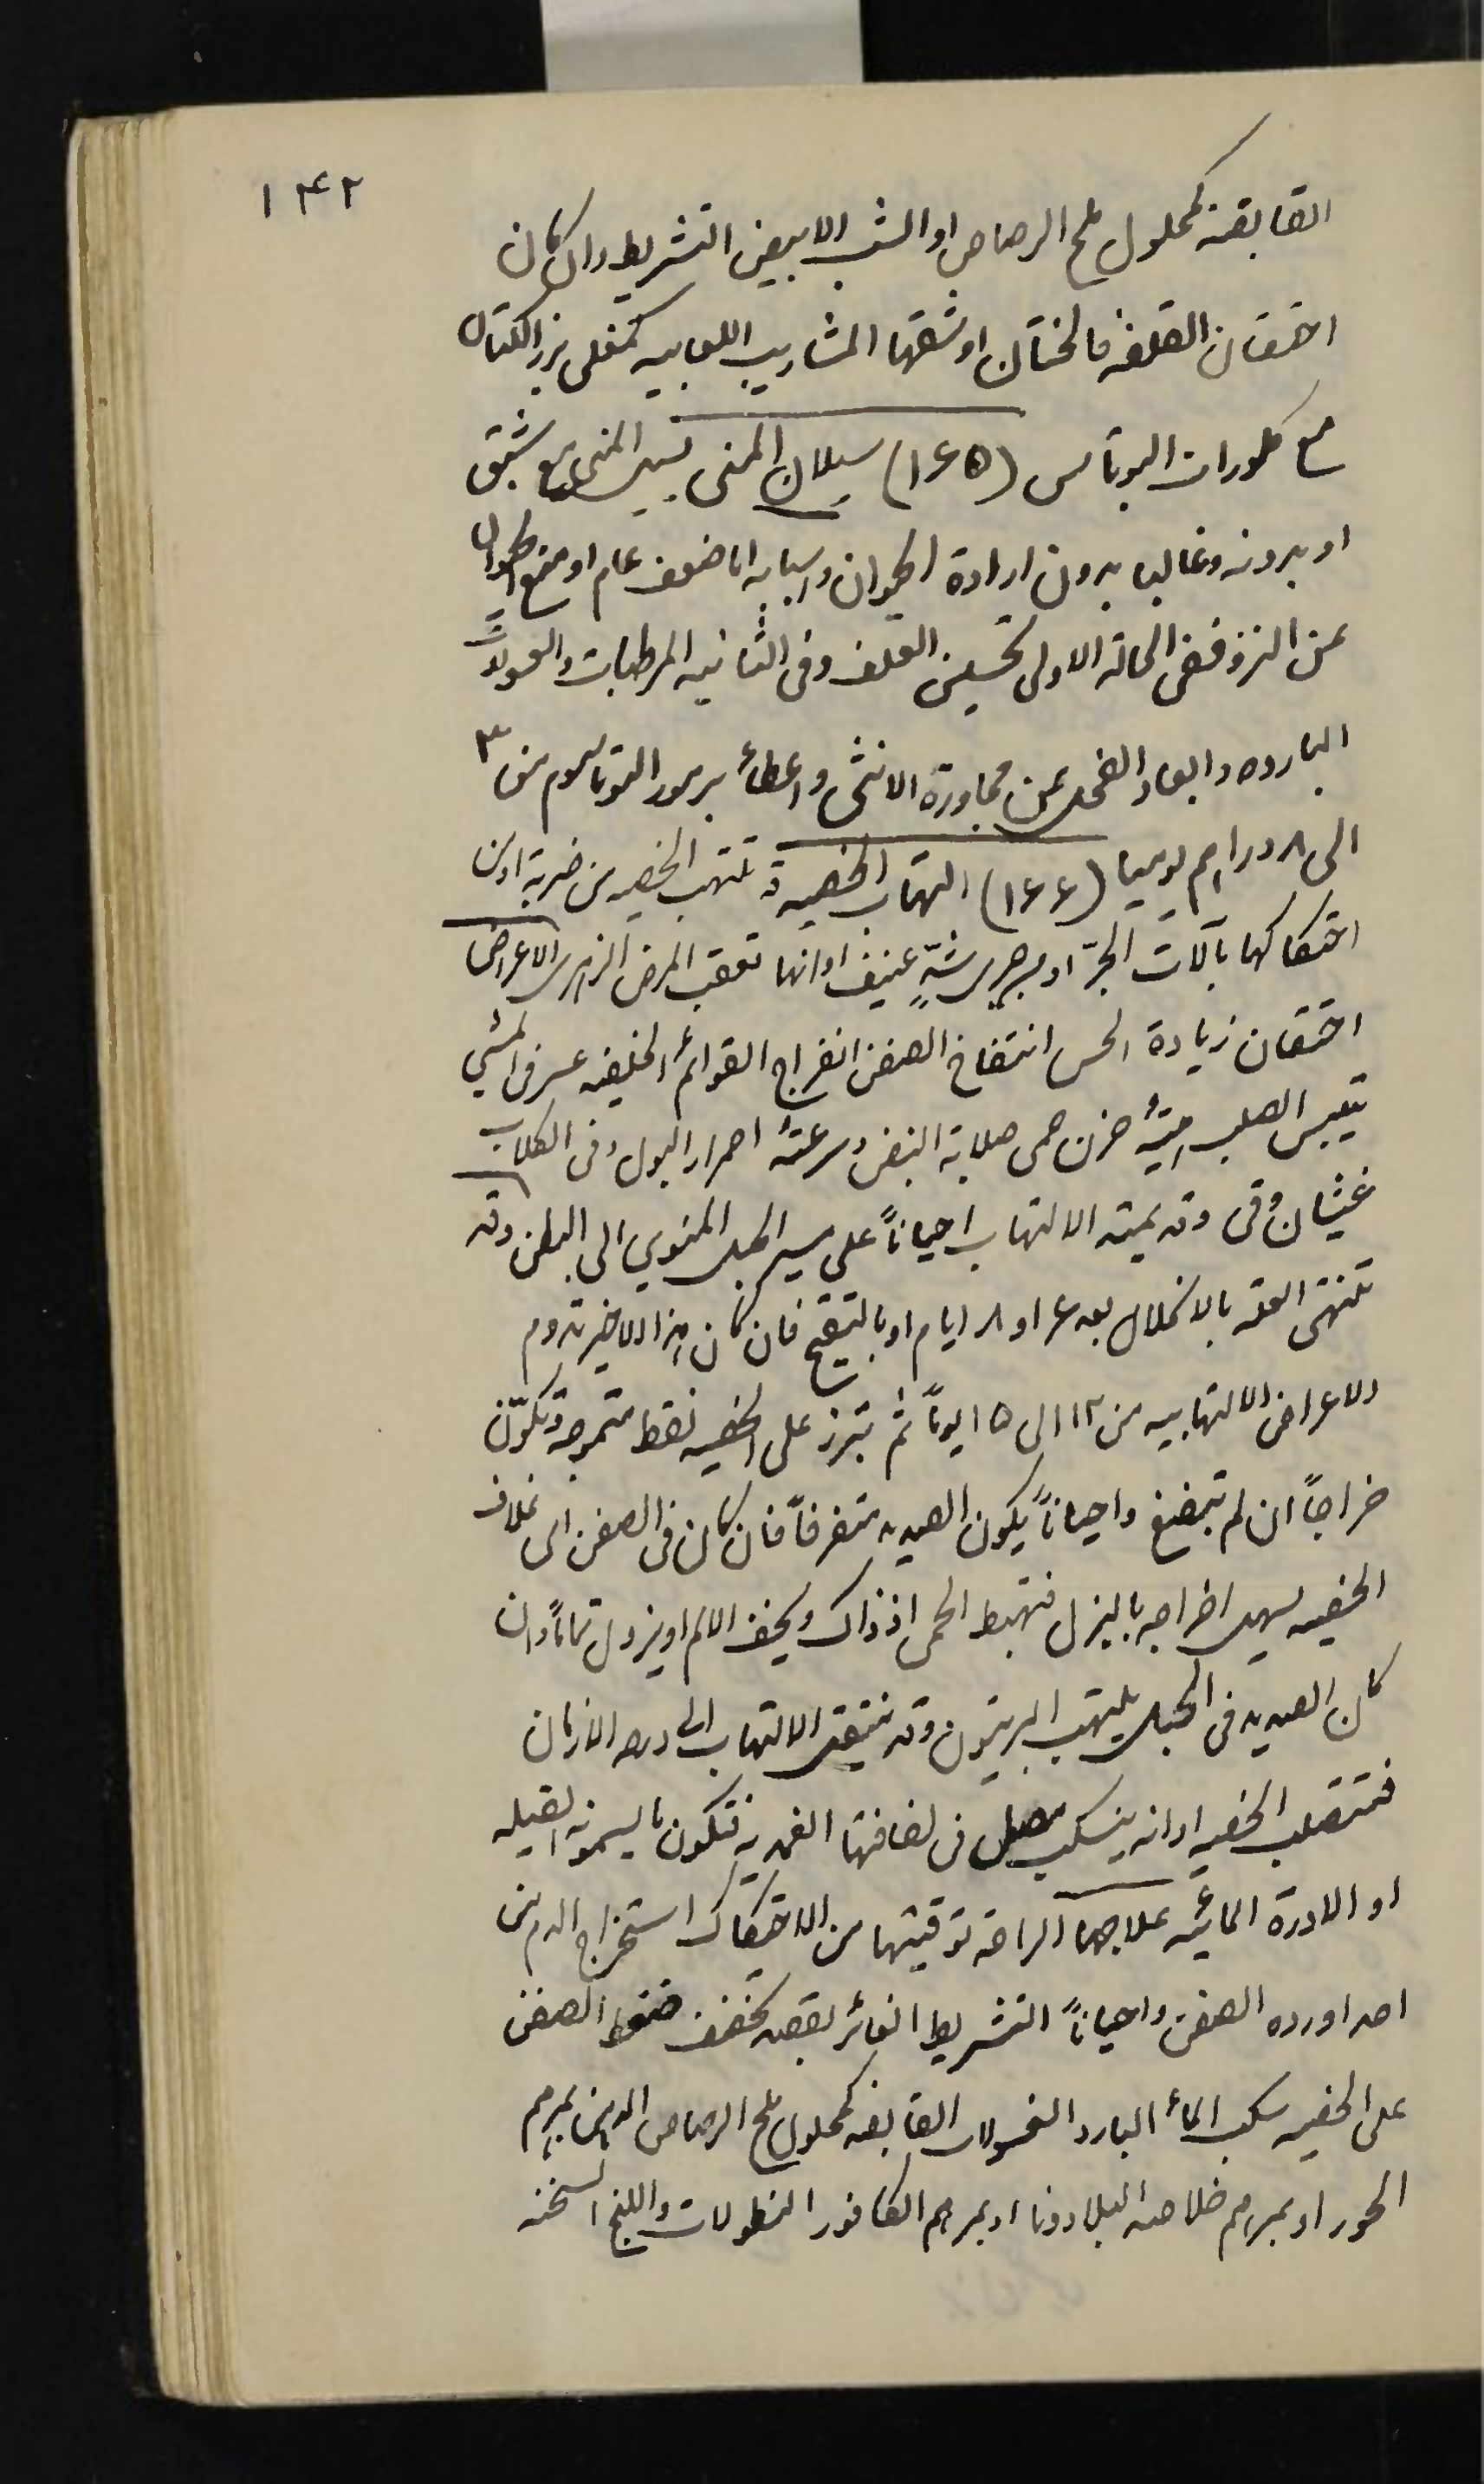 ١٤٢
القابضة كمحلول ملح الرصاص او الشب الابيض التشريط وان كان
احتقان القلفه فالختان او شقها المشاريب اللعابيه كمغلى بزر الكتان
مع كلورات البوتاس (١٦٥) سيلان المنى يسيل المنى مع شبق
او بدونه وغالبا بدون ارادة الحيوان واسبابه اما ضعف عام او منع الحيوان
عن النزو ففى الحالة الاولى تحسين العلف وفى الثانيه المرطبات والغسولات
البارده وابعاد الفحل عن مجاورة الانثى واعطاء برمور البوتاسيوم من ٣
الى ٨ دراهم يوميا (١٦٦) التهاب الخصية تلتهب الخصيه من ضربة او من
احتكاكها بآلات الجرّ او عنيف او انها تعقب المرض الزهرى الاعراض
احتقان زيادة الحس انتفاخ الصفن انفراج القوائم الخلفيه عسر فى المشي
تيبس الصلب حزن حمى صلابة النبض وسرعته احمرار البول وفى الكلاب
غثيان وقى وقد يمتد الالتهاب احياناً على سير الحبل المنوي الى البطن وقد
تنتهى العله بالانحلال بعد ٦ او ٨ ايام او بالتقيح فان كان هذا الاخير تدوم
الاعراض الالتهابيه من ١٢ الى ١٥ يوماً ثم تبرز على الخصيه نقط متموجة وتكوّن
خراجاً ان لم تبضغ واحياناً يكون الصديد متفرقاً فان كان فى الصفن اى غلاف
الخصيه يسهل اخراجه بالبزل فتهبط الحمى اذ ذاك ويخف الالم او يزول تماماً وان
كان الصديد فى الحبل يلتهب البريتون وقد ينتقل الالتهاب الى دور الازمان
فتتصلب الخصيه او انه ينسكب مصل فى لفافتها الغمديه فتكون ما يسمونه القيله
او الادرة المائيه علاجها الراحه توقيتها من الاحتكاك استخراج الدم من
احد اورده الصفن واحياناً التشريط الغائر بقصد تخفيف ضغط الصفن
على الخصيه سكب الماء البارد الغسولات القابضه كمحلول ملح الرصاص الدهن بمرهم
الحور او بمرهم خلاصه البلادونا او بمرهم الكافور النطولات واللبخ السخنه